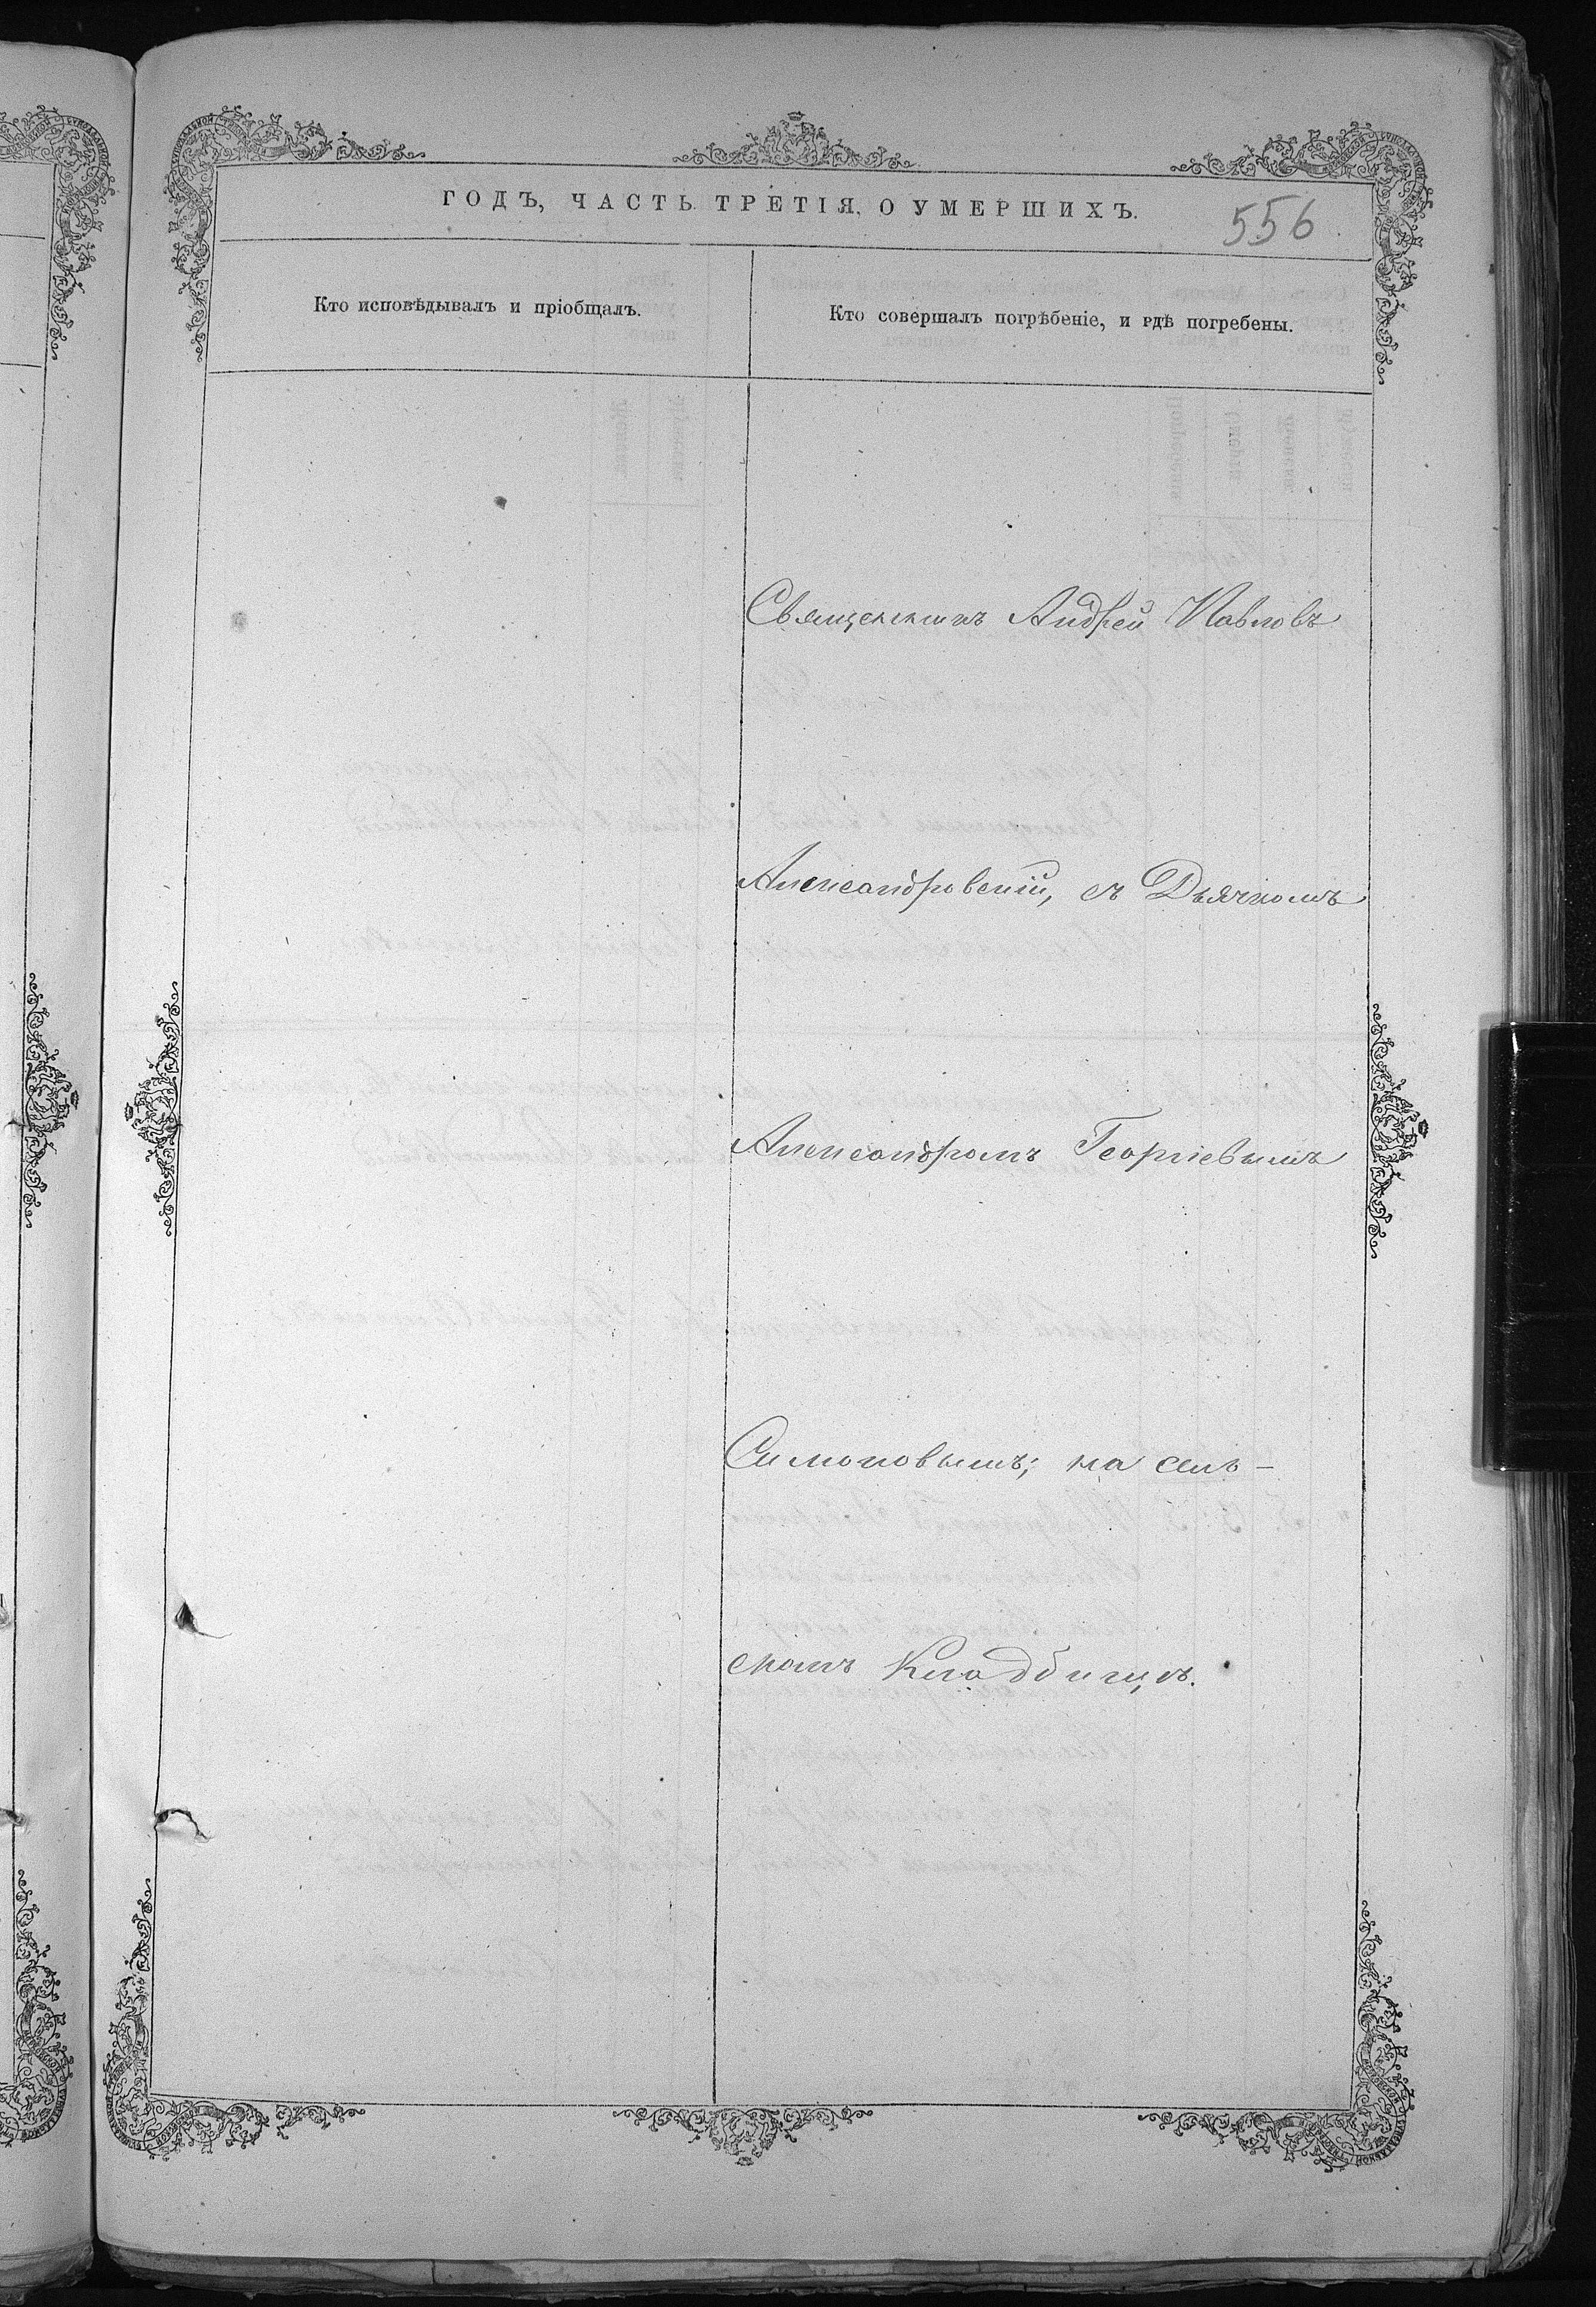 ГОДЪ, ЧАСТЬ ТРЕТІЯ, О УМЕРШИХЪ.
556
Кто исповѣдывалъ и пріобщалъ.
Кто совершалъ погрѣбеніе, и гдѣ погребены.
Священникъ Андрей Павловъ
Александровскій, съ Дьячкомъ
Александромъ Георгіевымъ
Симоновымъ; на сель-
скомъ Кладбищѣ.